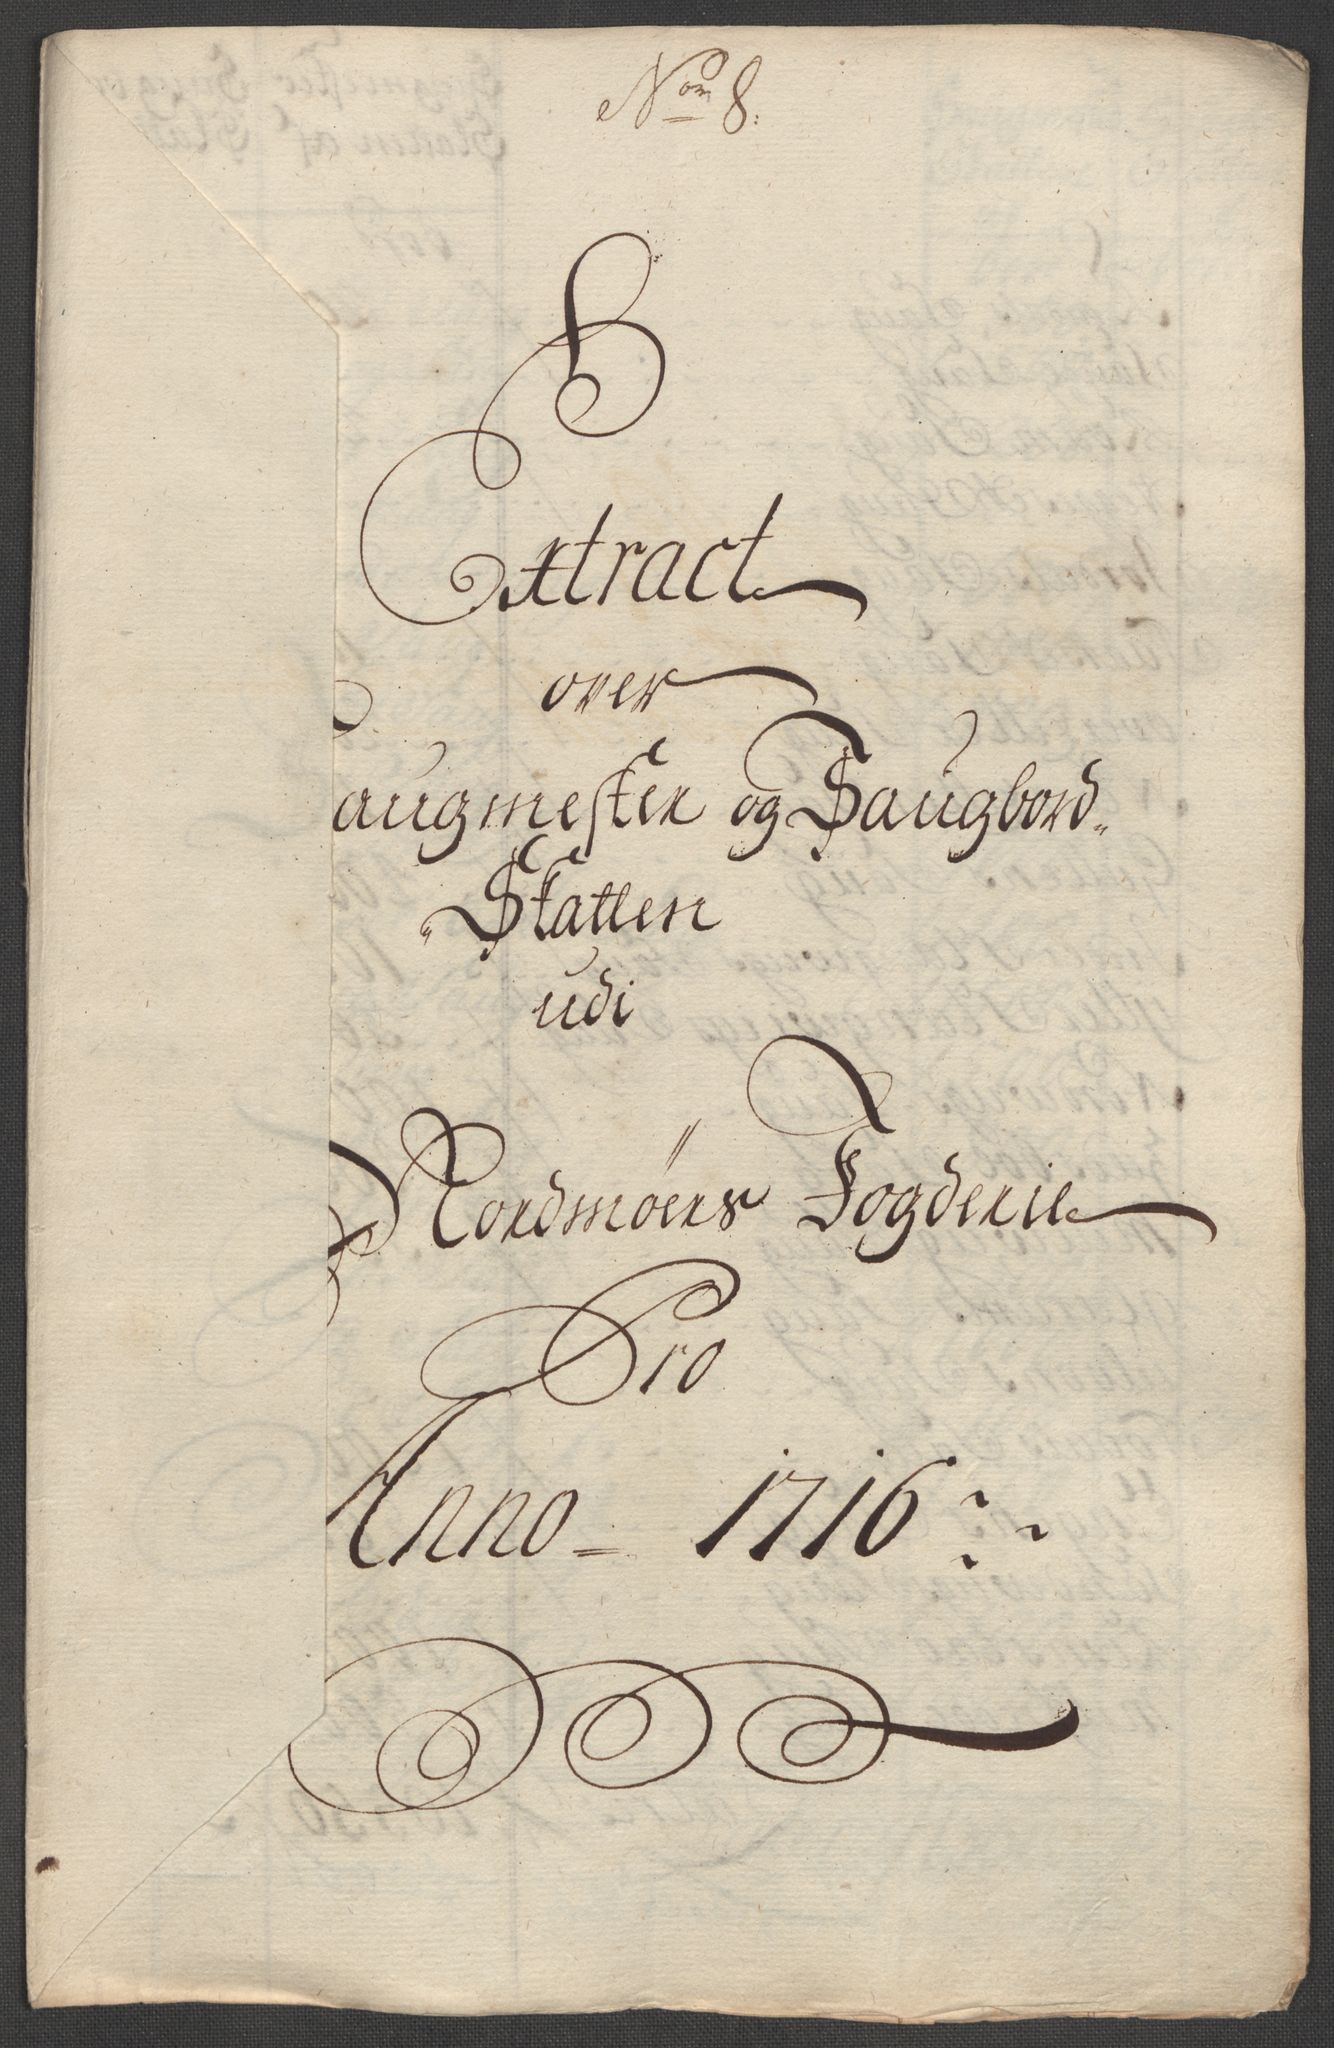 Nom 8.
Extract
over
augmester og Saugbord
Skatten
udi
Nordmøers Fogderie
Pro
Anno 1716